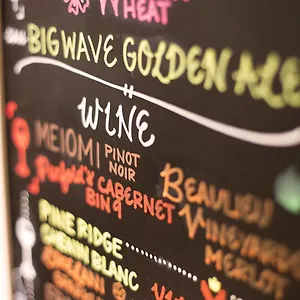 WHEAT
BIG WAVE GOLDEN ALE
WINE
MEIOMI PINOT NOIR
Penfold's CABERNET BIN 9
BEAULIEU VINEYARDS MERLOT
PINE RIDGE
CHENIN BLANC